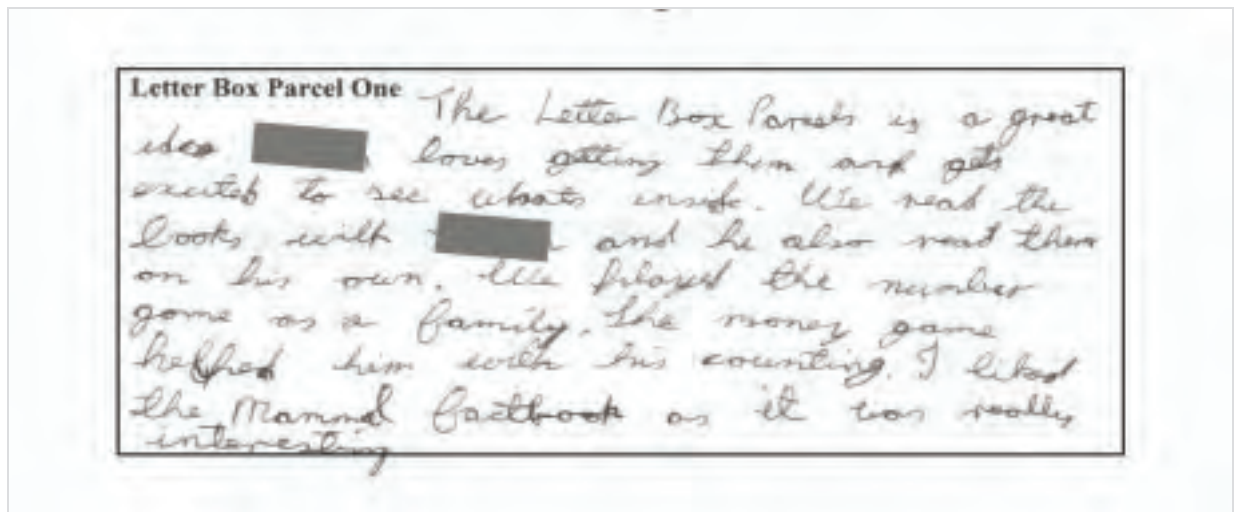 Letter Box Parcel One
The Letter Box Parcels is a great
idea loves getting them and gets
excited to see whats inside. We read the
books with and he also read them
on his own. We played the number
game as a family. The money game
helped him with his counting. I liked
the Mammal factbook as it was really
interesting